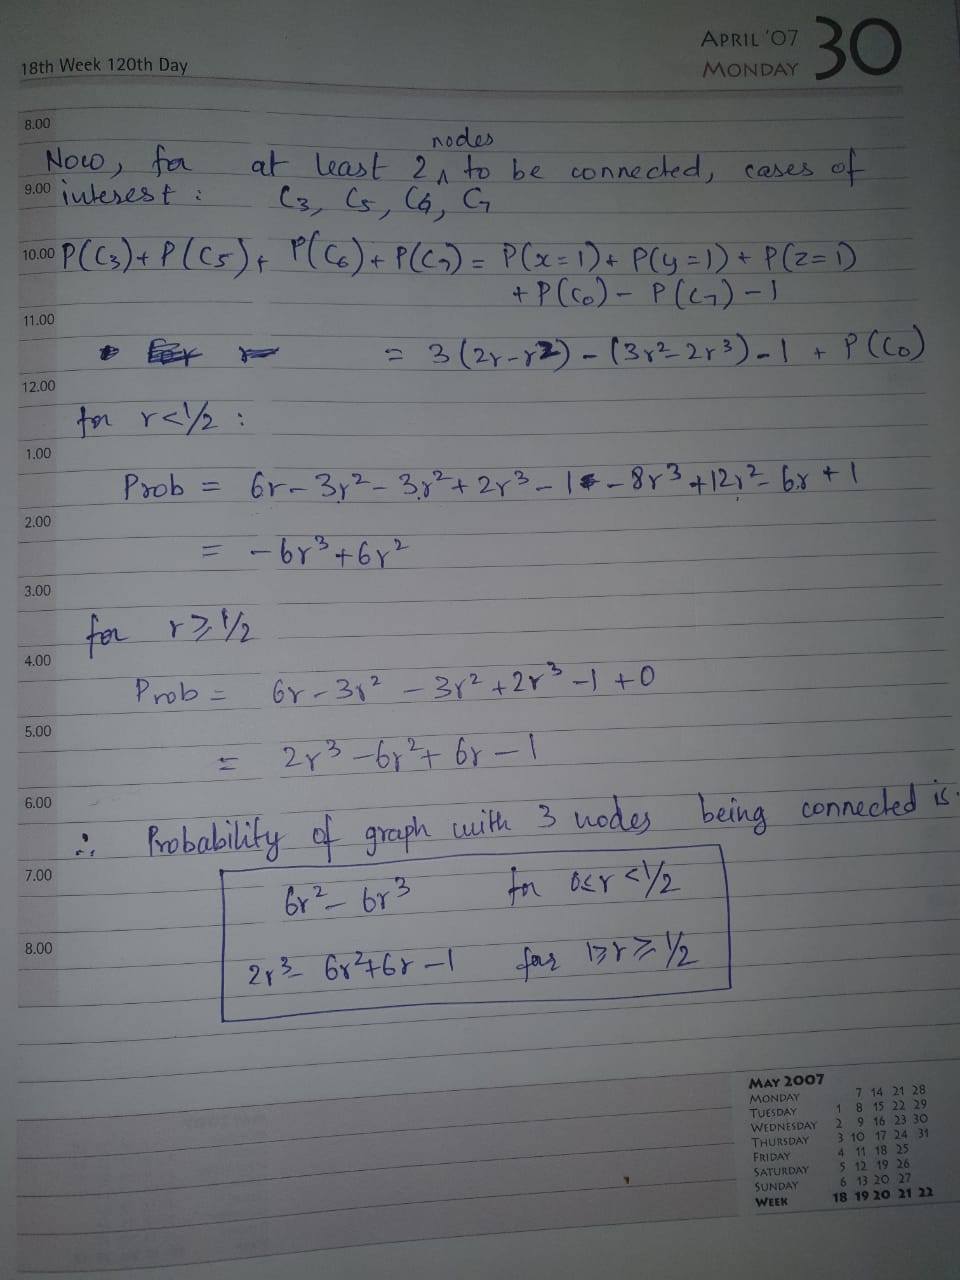 APRIL '07
30
18th Week 120th Day
MONDAY
8.00
nodes
Now, for at least 2 ∧ to be connected, cases of
9.00 interest : C3, C5, C6, C7
10.00 P(C3) + P(C5) + P(C6) + P(C7) = P(x=1) + P(y=1) + P(z=1)
+ P(C0) - P(C7) - 1
11.00
= 3(2r-r2) - (3r² 2r³) - 1 + P(C0)
12.00
for r<1/2 :
1.00
Prob = 6r - 3r² - 3r² + 2r³ - 1 - 8r³ + 12r² - 6r + 1
2.00
= - 6r³ + 6r²
3.00
for r ≥ 1/2
4.00
Prob = 6r - 3r² - 3r² + 2r³ - 1 + 0
5.00
= 2r³ - 6r² + 6r - 1
6.00
∴ Probability of graph with 3 nodes being connected is
7.00
6r² - 6r³ for 0≤r<1/2
8.00
2r³ - 6r² + 6r - 1 for 1≥r≥1/2
MAY 2007
MONDAY 7 14 21 28
TUESDAY 1 8 15 22 29
WEDNESDAY 2 9 16 23 30
THURSDAY 3 10 17 24 31
FRIDAY 4 11 18 25
SATURDAY 5 12 19 26
SUNDAY 6 13 20 27
WEEK 18 19 20 21 22